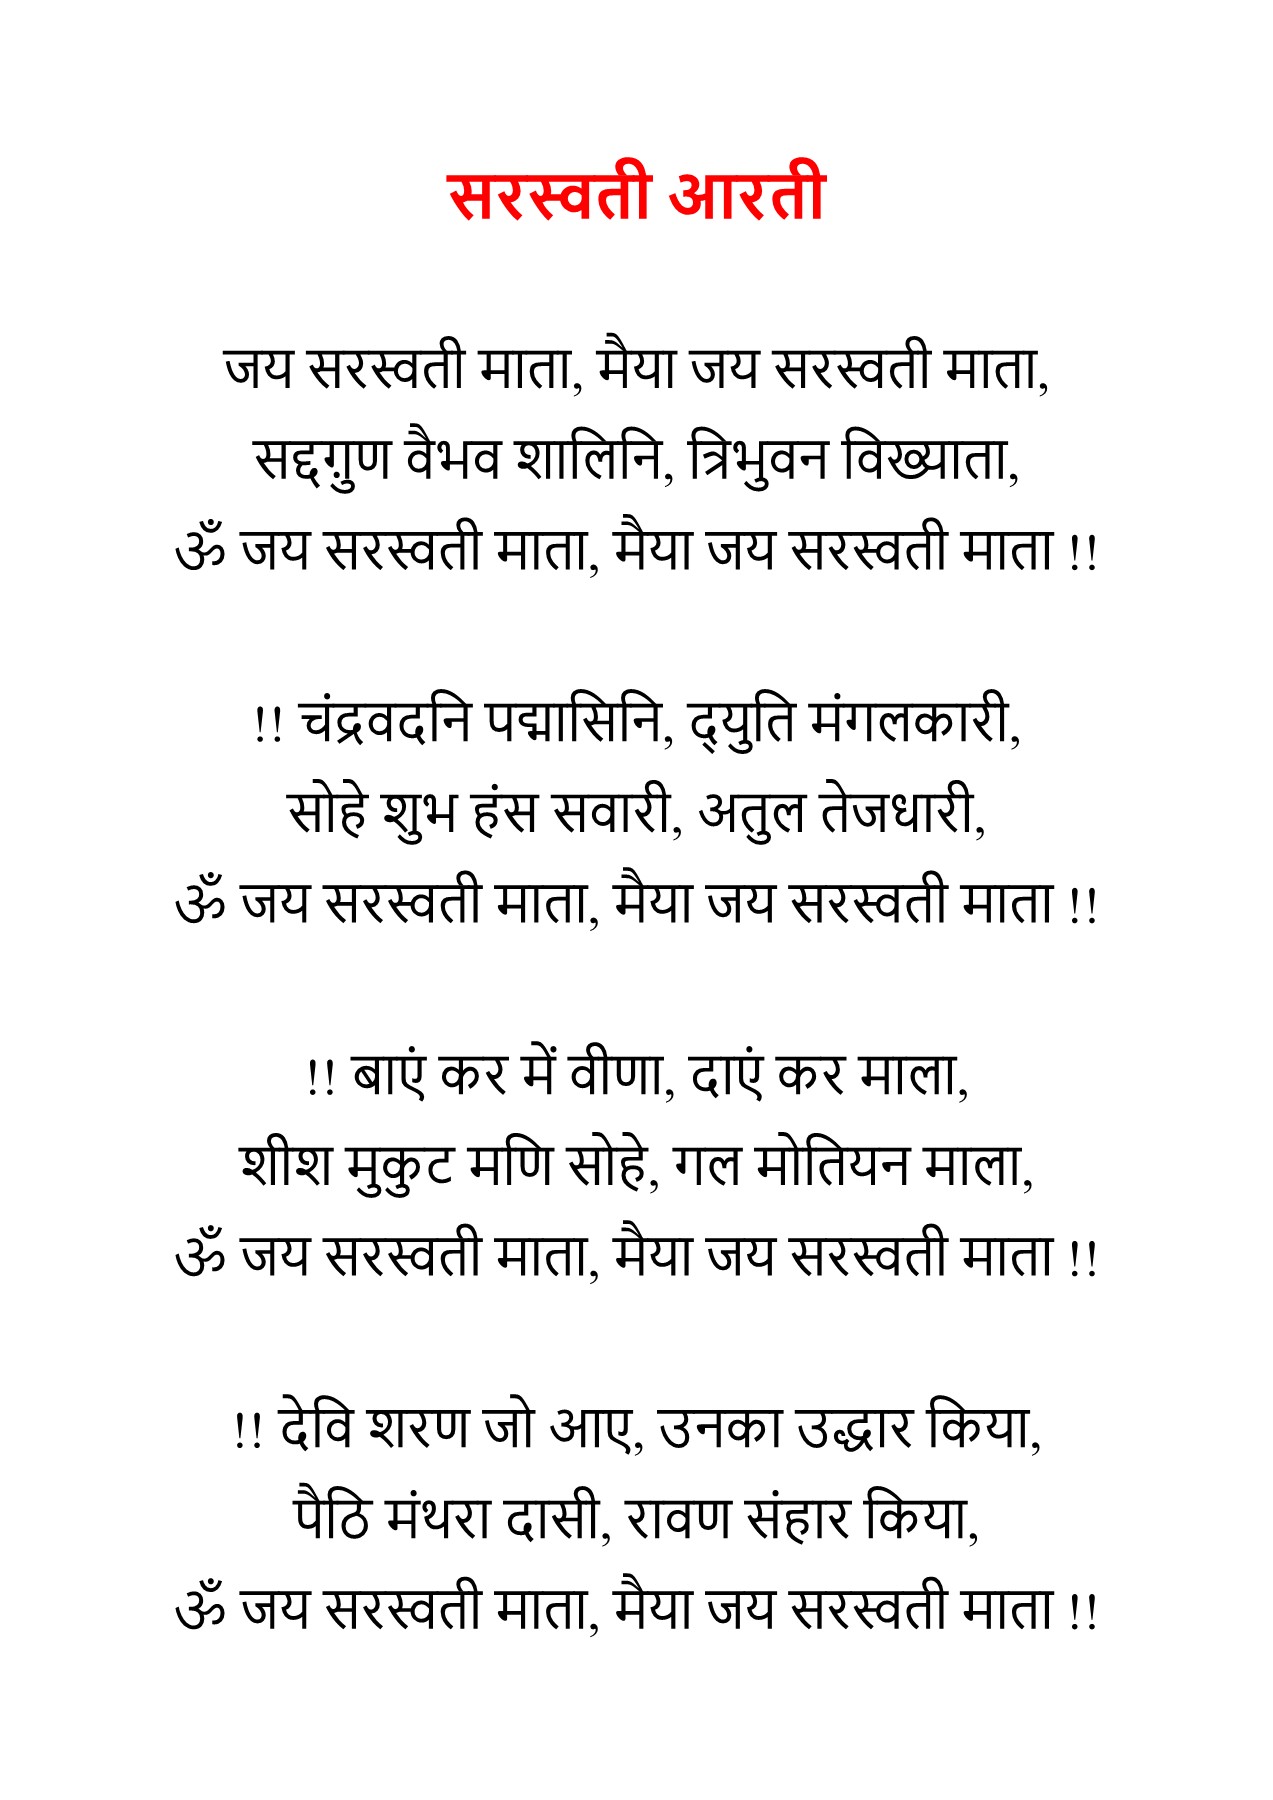 सरस्वती आरती
जय सरस्वती माता, मैया जय सरस्वती माता,
सद्दग़ुण वैभव शालिनि, त्रिभुवन विख्याता,
ॐ जय सरस्वती माता, मैया जय सरस्वती माता !!
!! चंद्रवदनि पद्मासिनि, द्‌युति मंगलकारी,
सोहे शुभ हंस सवारी, अतुल तेजधारी,
ॐ जय सरस्वती माता, मैया जय सरस्वती माता !!
!! बाएं कर में वीणा, दाएं कर माला,
शीश मुकुट मणि सोहे, गल मोतियन माला,
ॐ जय सरस्वती माता, मैया जय सरस्वती माता !!
!! देवि शरण जो आए, उनका उद्धार किया,
पैठि मंथरा दासी, रावण संहार किया,
ॐ जय सरस्वती माता, मैया जय सरस्वती माता !!